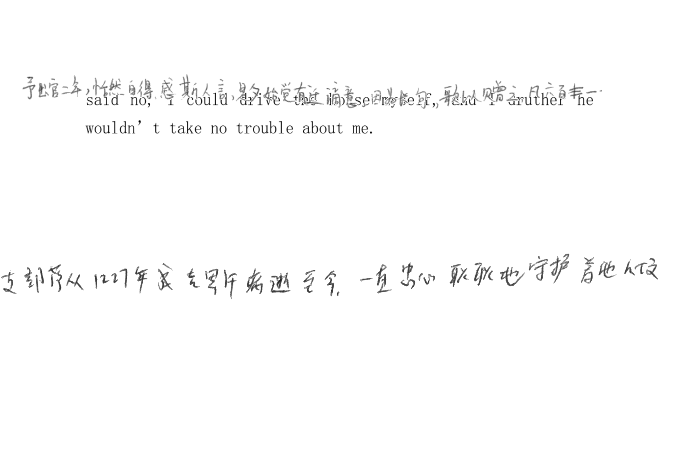 予出官二年,恬然自得,感斯人言,是夕始觉有迁谪意,因为长句,歌以赠之,凡六百
said no, I could drive the horse myself, and I druther he
wouldn't take no trouble about me.
支部落从1227年成吉思汗病逝至今,一直忠心耿耿地守护着他